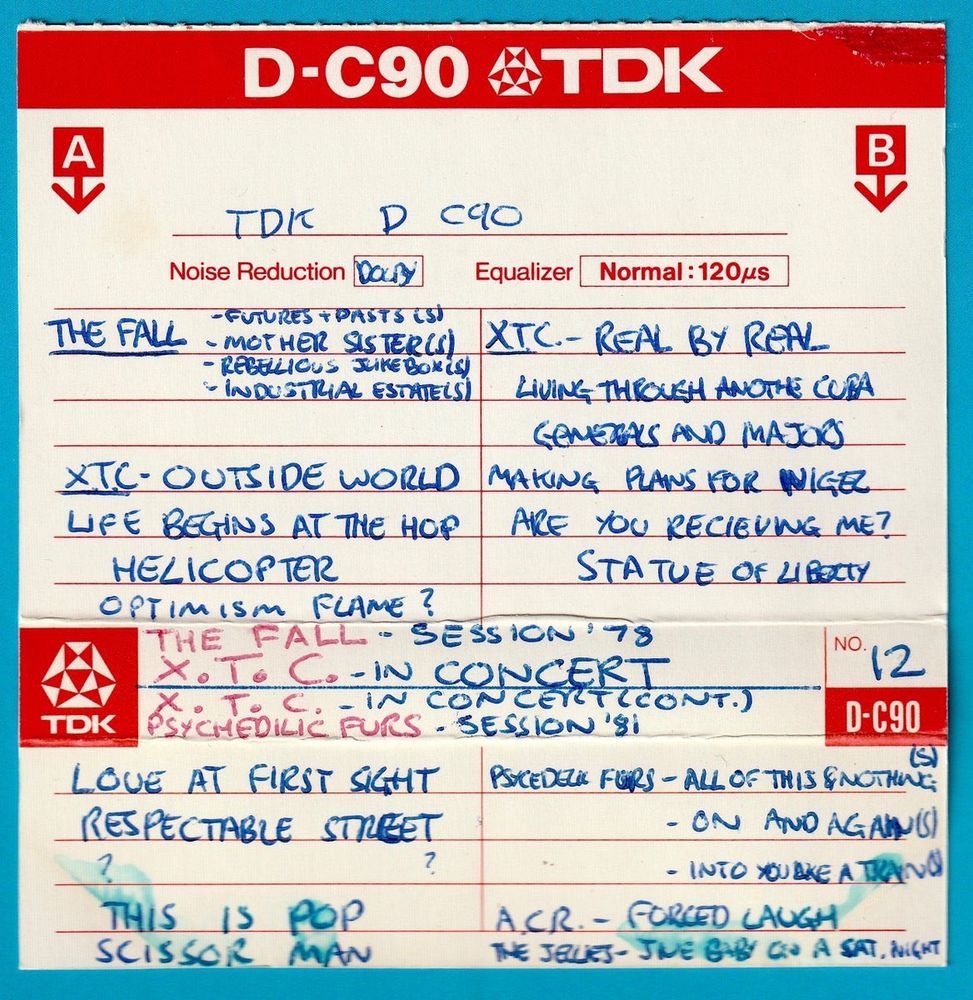 D-C90 TDK
A
B
TDK D C90
Noise Reduction DOLBY
Equalizer Normal:120μs
THE FALL - FUTURES + PASTS (S)
- MOTHER SISTER (S)
- REBELLIOUS JUKEBOX (S)
- INDUSTRIAL ESTATE (S)
XTC - OUTSIDE WORLD
LIFE BEGINS AT THE HOP
HELICOPTER
OPTIMISM FLAME?
XTC. - REAL BY REAL
LIVING THROUGH ANOTHE CUBA
GENERALS AND MAJORS
MAKING PLANS FOR NIGEL
ARE YOU RECIEVING ME?
STATUE OF LIBERTY
TDK
THE FALL - SESSION '78
X.T.C. - IN CONCERT
X.T.C. - IN CONCERT (CONT.)
PSYCHEDILIC FURS - SESSION '81
NO. 12
D-C90
LOVE AT FIRST SIGHT
RESPECTABLE STREET
? ?
THIS IS POP
SCISSOR MAN
PSYCEDELIC FURS - ALL OF THIS & NOTHING (S)
- ON AND AGAIN (S)
- INTO YOU LIKE A TRAIN (S)
A.C.R. - FORCED LAUGH
THE JELLIES - JIVE BABY ON A SAT. NIGHT